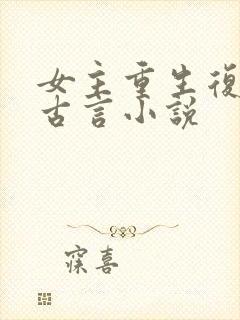 女主重生復
古言小說
寐喜